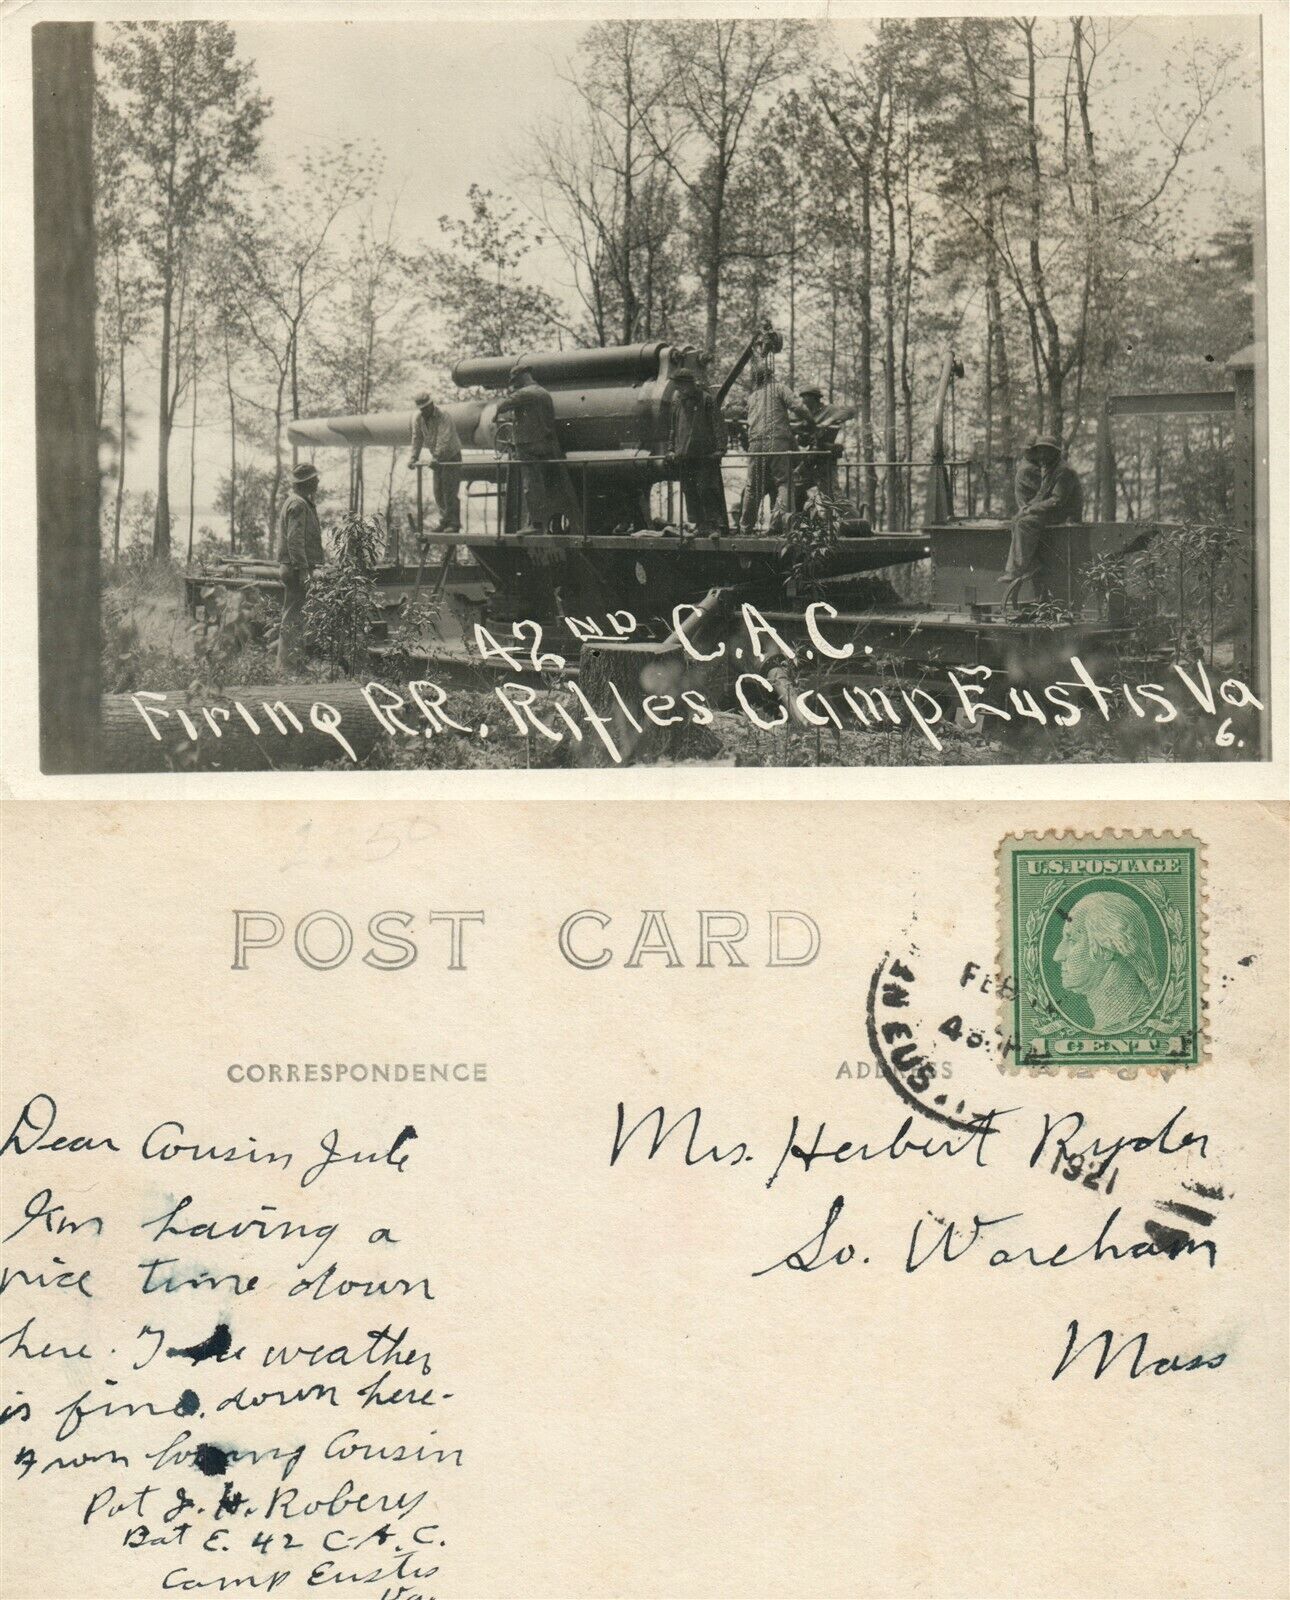 42ND C.A.C.
Firing R.R. Rifles Camp Eustis Va
6.
POST CARD
U.S. POSTAGE
1 CENT 1
FEB
4
EUS
1921
CORRESPONDENCE
ADDRESS
Dear Cousin Jule
I'm having a
nice time down
here. The weather
is fine. down here.
From loving Cousin
Pvt J. H. Roberts
Bat E. 42 C.A.C.
Camp Eustis
Va.
Mrs. Herbert Ryder
So. Wareham
Mass